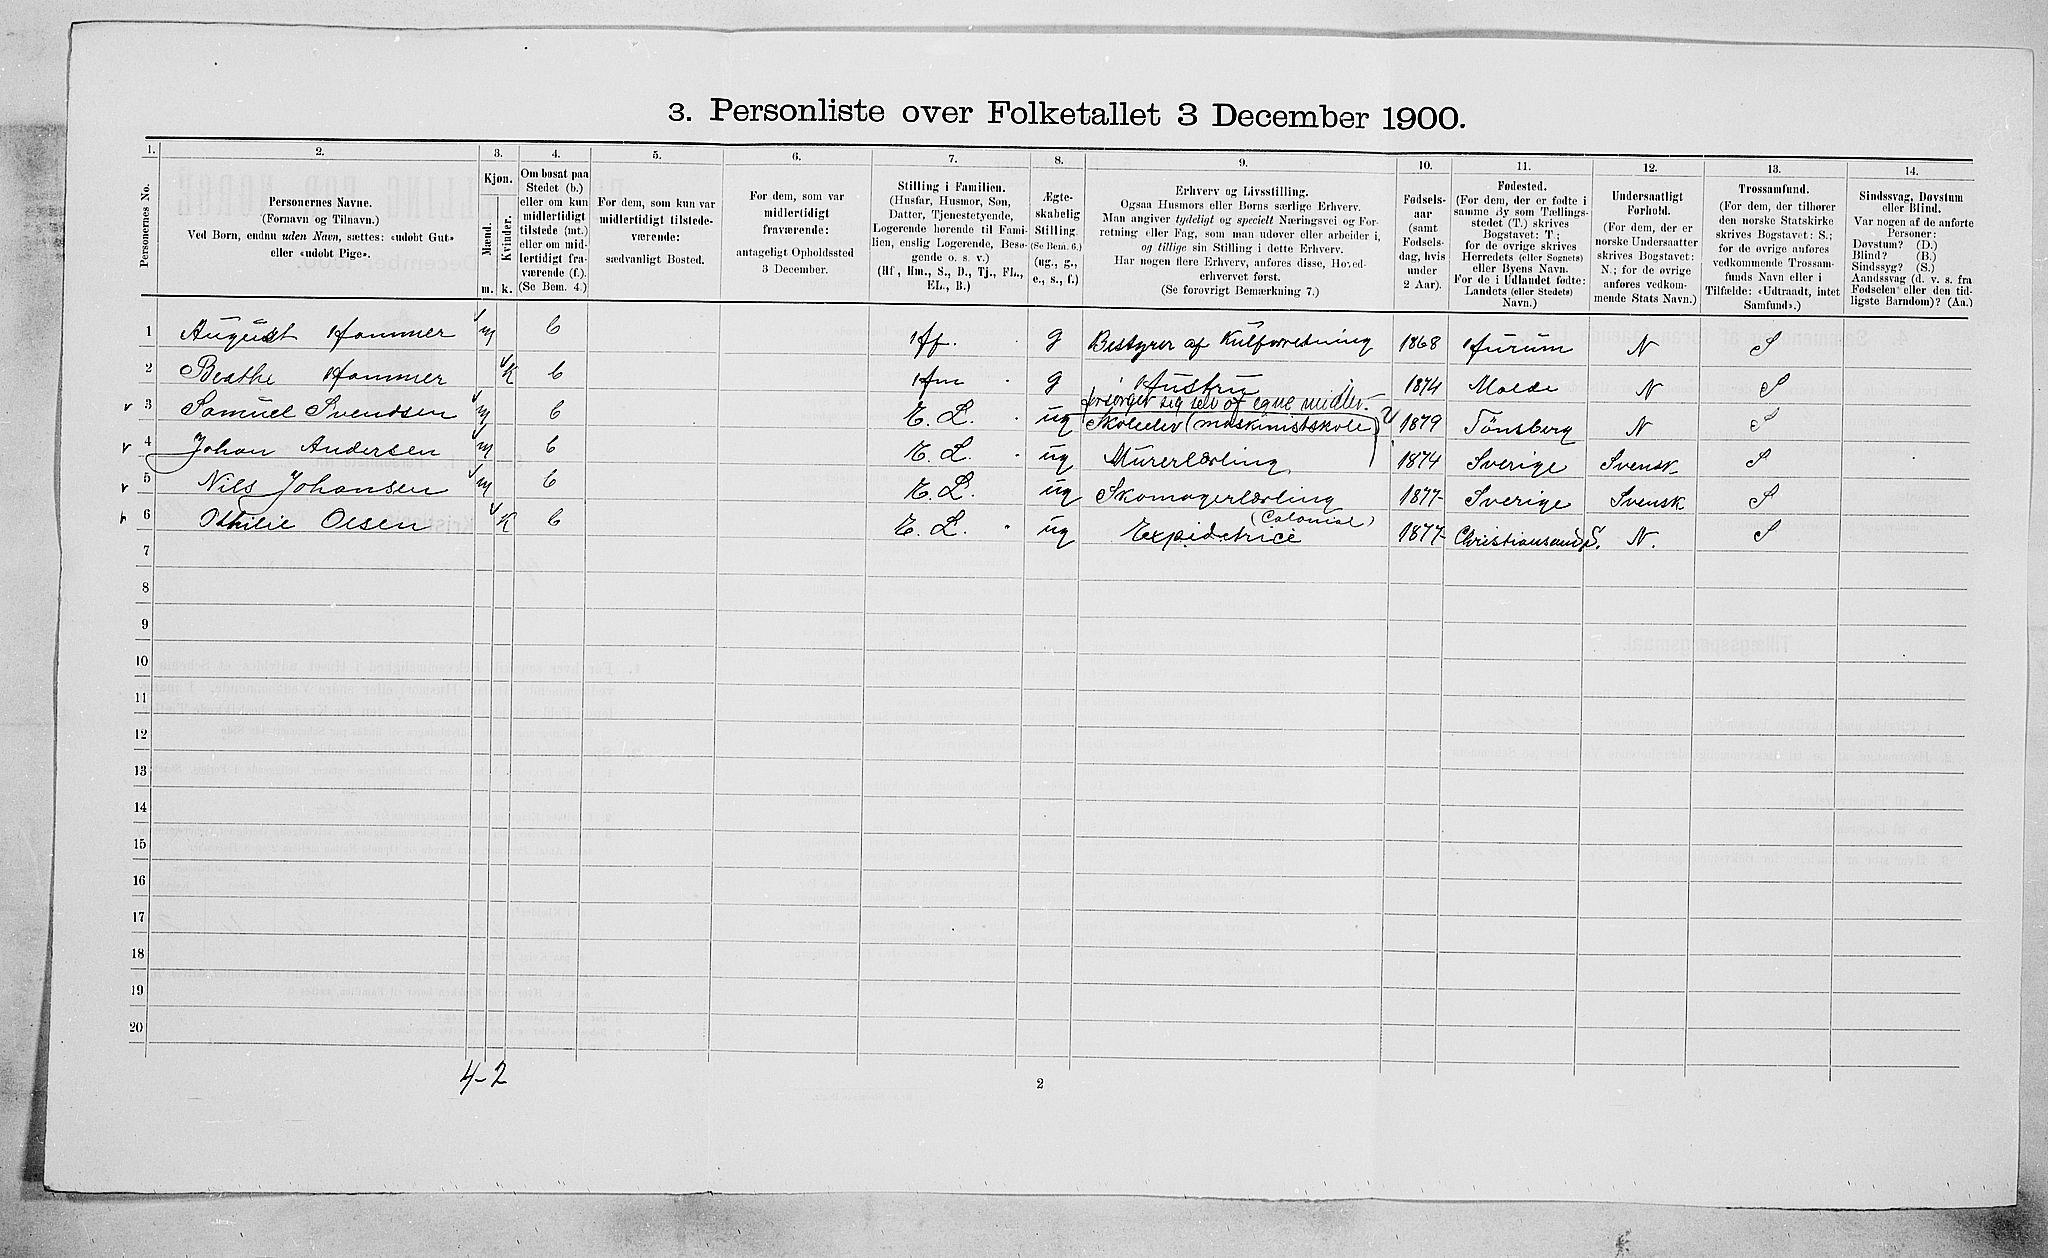 3. Personliste over Folketallet 3 December 1900.
1. 2. 3. 4. 5. 6. 7. 8. 9. 10. 11. 12. 13. 14.
Personernes No.
Personernes Navne.
(Fornavn og Tilnavn.)
Ved Børn, endnu uden Navn, sættes: «udøbt Gut»
eller «udøbt Pige».
Kjøn.
Mænd.
Kvinder.
m. k.
Om bosat paa
Stedet (b.)
eller om kun
midlertidigt
tilstede (mt.)
eller om mid-
lertidigt fra-
værende (f.)
(Se Bem. 4.)
For dem, som kun var
midlertidigt tilstede-
værende:
sædvanligt Bosted.
For dem, som var
midlertidigt
fraværende:
antageligt Opholdssted
3 December.
Stilling i Familien.
(Husfar, Husmor, Søn,
Datter, Tjenestetyende,
Logerende hørende til Fami-
lien, enslig Logerende, Besø-
gende o. s. v.)
(Hf., Hm., S., D., Tj., FL.,
EL., B.)
Ægte-
skabelig
Stilling.
(Se Bem. 6.)
(ug., g.,
e., s., f.)
Erhverv og Livsstilling.
Ogsaa Husmors eller Børns særlige Erhverv.
Man angiver tydeligt og specielt Næringsvei og For-
retning eller Fag, som man udøver eller arbeider i,
og tillige sin Stilling i dette Erhverv.
Har nogen flere Erhverv, anføres disse, Hoved-
erhvervet først.
(Se forøvrigt Bemærkning 7.)
Fødsels-
aar
(samt
Fødsels-
dag, hvis
under
2 Aar).
Fødested.
(For dem, der er fødte i
samme By som Tællings-
stedet (T.) skrives
Bogstavet: T.;
for de øvrige skrives
Herredets (eller Sognets)
eller Byens Navn.
For de i Udlandet fødte:
Landets (eller Stedets)
Navn.)
Undersaatligt
Forhold.
(For dem, der er
norske Undersaatter
skrives Bogstavet:
N.; for de øvrige
anføres vedkom-
mende Stats Navn.)
Trossamfund.
(For dem, der tilhører
den norske Statskirke
skrives Bogstavet: S.;
for de øvrige anføres
vedkommende Trossam-
funds Navn eller i
Tilfælde: «Udtraadt, intet
Samfund».)
Sindssvag, Døvstum
eller Blind.
Var nogen af de anførte
Personer:
Døvstum? (D.)
Blind? (B.)
Sindssyg? (S.)
Aandssvag (d. v. s. fra
Fødselen eller den tid-
ligste Barndom)? (Aa.)
1 August Hammer m b Hf. g Bestyrer af Kulforretning 1868 Hurum N S
2 Beathe Hammer K b Hm g Hustru 1874 Molde N S
forsørger sig selv af egne midler.
3 Samuel Svendsen m b E. L. ug Skoleelev (maskinistskole) 1879 Tönsberg N S
4 Johan Andersen m b E. L. ug Murerlærling 1874 Sverige Svensk S
5 Nils Johansen m b E. L. ug Skomagerlærling 1877 Sverige Svensk S
(Colonial)
6 Othilie Olsen K b E. L. ug Expidetrice 1877 Christiansand S. N. S
7
8
9
10
11
12
13
14
15
16
17
18
19
20
4-2
2